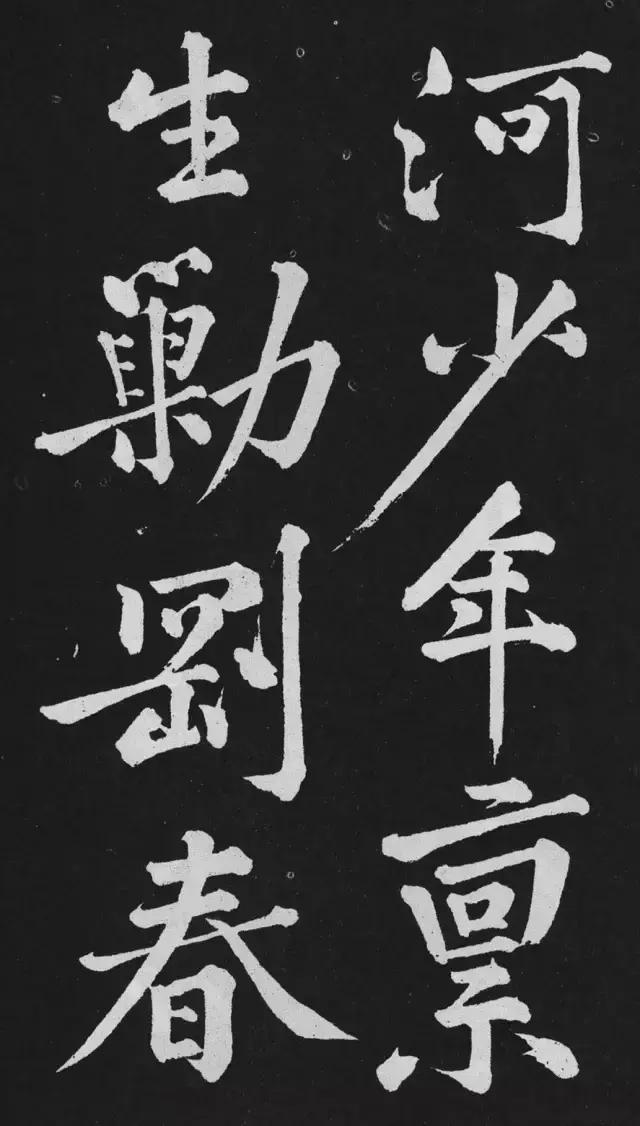 河少年禀
生勦劉春